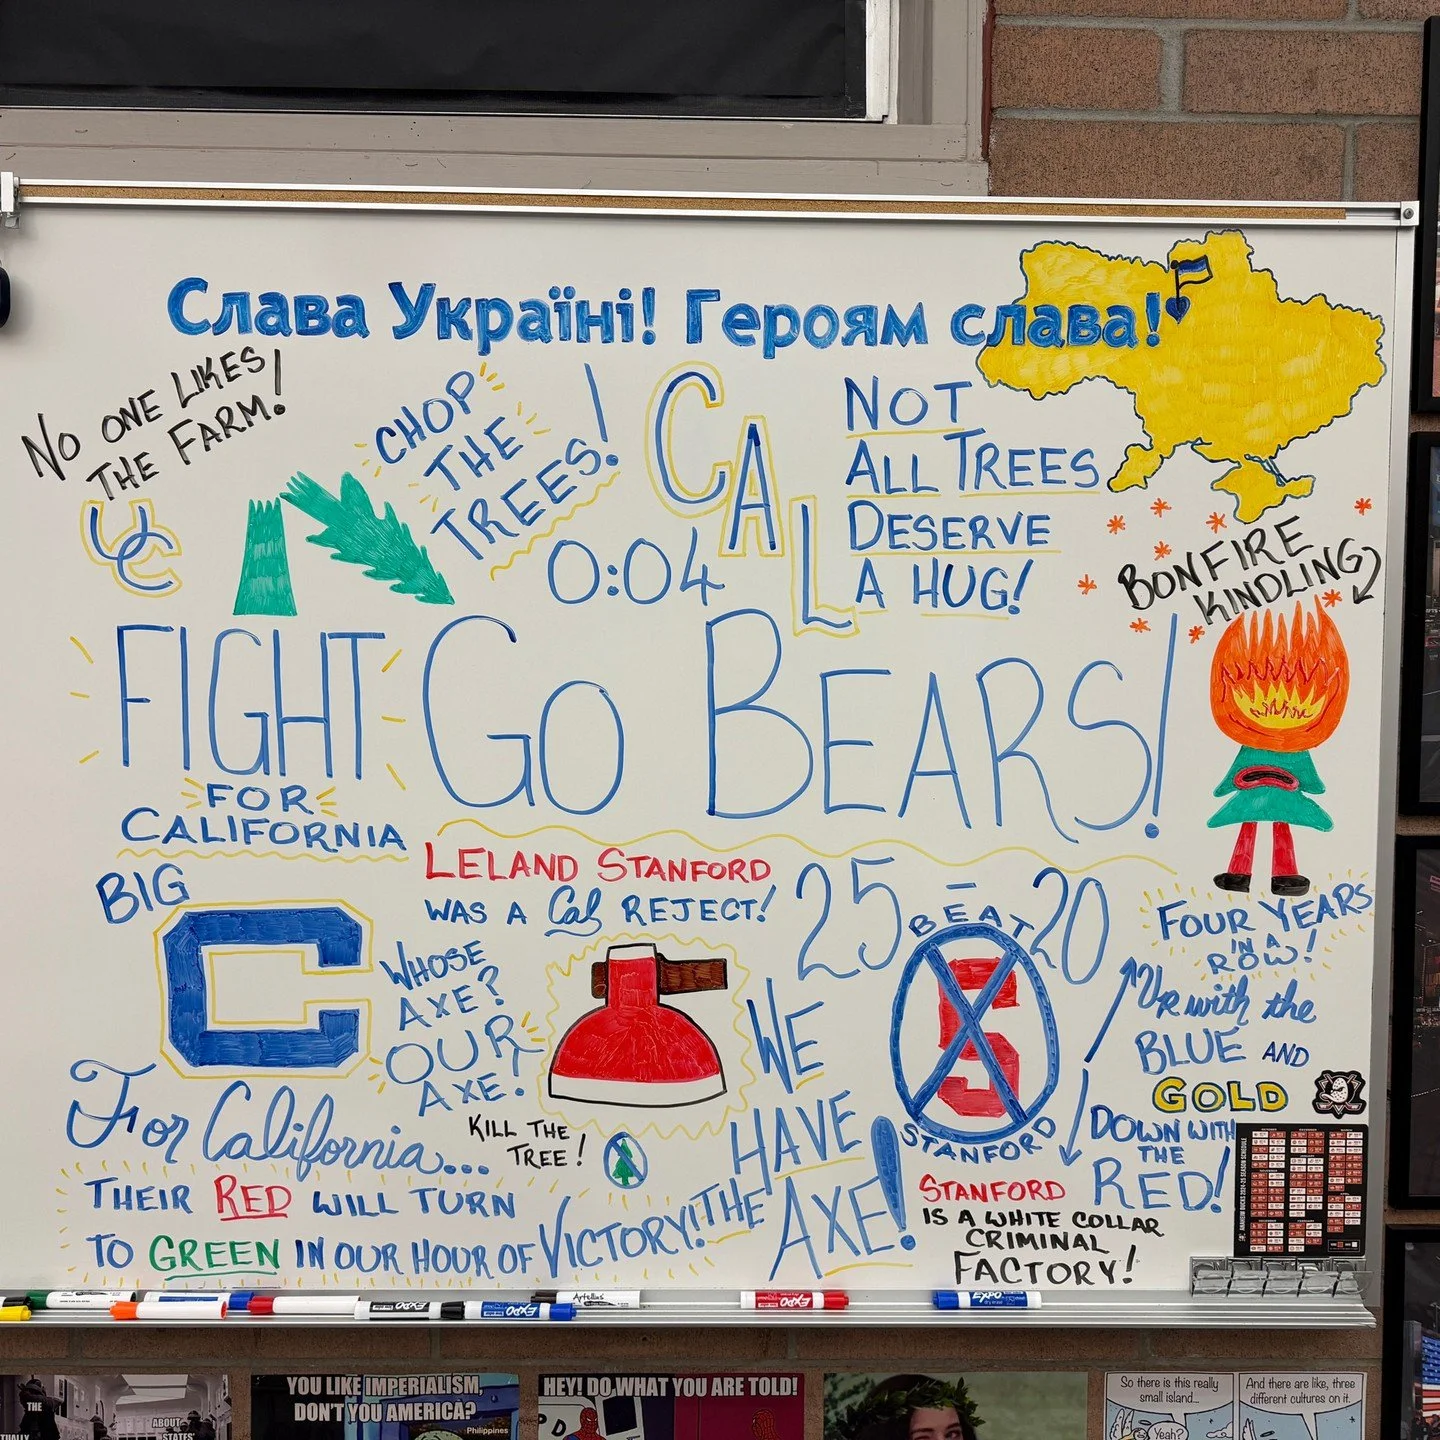 Слава Україні! Героям слава!
NO ONE LIKES
THE FARM!
UC
CHOP
THE
TREES!
CAL
0:04
NOT
ALL TREES
DESERVE
A HUG!
BONFIRE
KINDLING
FIGHT
FOR
CALIFORNIA
GO BEARS!
BIG
C
LELAND STANFORD
WAS A Cal REJECT!
25-20
WHOSE
AXE?
OUR
AXE!
WE
HAVE
THE AXE!
BEAT
S
STANFORD
FOUR YEARS
IN A
ROW!
Up with the
BLUE AND
GOLD
DOWN WITH
THE
RED!
For California...
KILL THE
TREE!
THEIR RED WILL TURN
TO GREEN IN OUR HOUR OF VICTORY!
STANFORD
IS A WHITE COLLAR
CRIMINAL
FACTORY!
ANAHEIM DUCKS 2024-25 SEASON SCHEDULE
EXPO
EXPO
Artellius
EXPO
EXPO
THE
ABOUT
STATES'
YOU LIKE IMPERIALISM,
DON'T YOU AMERICA?
Philippines
HEY! DO WHAT YOU ARE TOLD!
So there is this really
small island...
Yeah?
And there are like, three
different cultures on it.